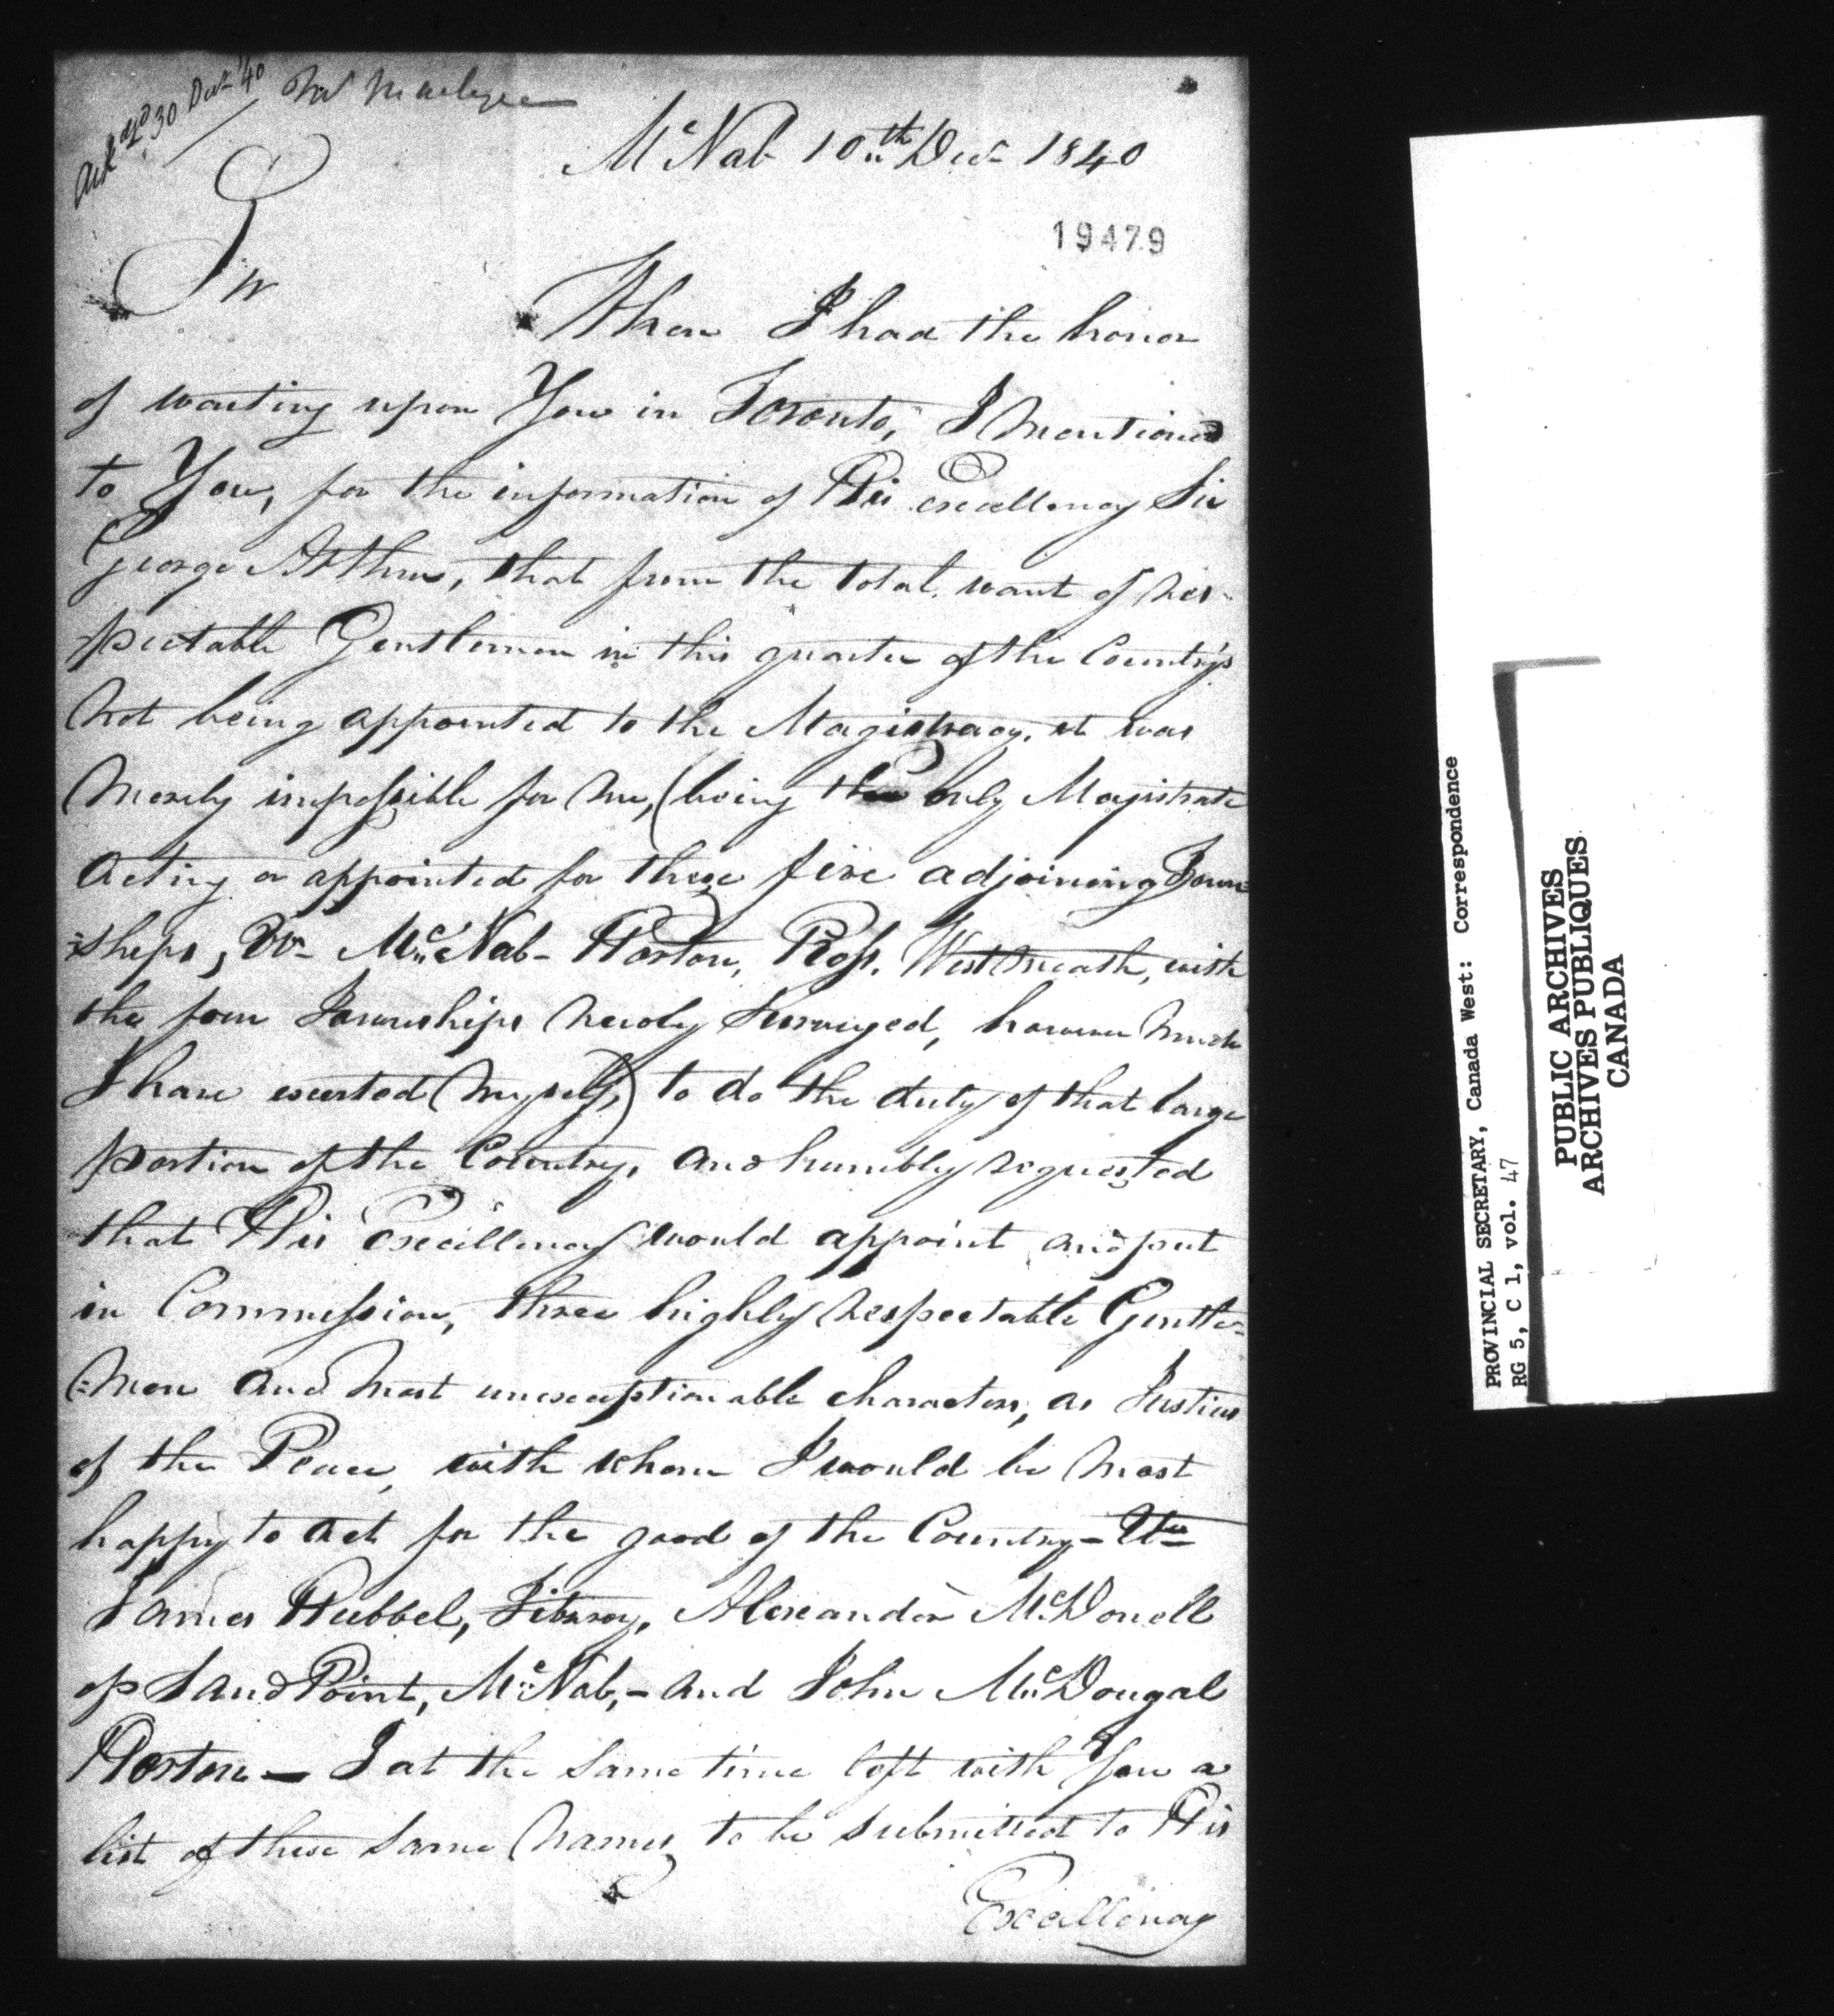 Ackd. 30 Decr. 40
McNab 10th Decr 1840
19479
Sir
When I had the honor
of waiting upon You in Toronto, I mentioned
to You, for the information of His Excellency Sir
George Arthur, that from the total want of res-
pectable Gentlemen in this quarter of the Country
not being appointed to the Magistracy, it was
merely impossible for me, (being the only Magistrate
acting or appointed for these five adjoining Town
=ships, Vr- McNab- Horton, Ross, Westmeath, with
the four Townships newly surveyed, however much
I have exerted myself,) to do the duty of that large
portion of the Country, and humbly requested
that His Excellency would appoint and put
in Commission, three highly respectable Gentle=
=men and most unexceptionable characters, as Justices
of the Peace, with whom I would be most
happy to act for the good of the Country-
James Hubbel, Fitzroy, Alexander McDonell
of Sand Point, McNab,- and John McDougal
Horton - I at the same time left with You a
list of these same names to be submitted to His
Excellency
PROVINCIAL SECRETARY, Canada West: Correspondence
RG 5, C 1, vol. 47
PUBLIC ARCHIVES
ARCHIVES PUBLIQUES
CANADA